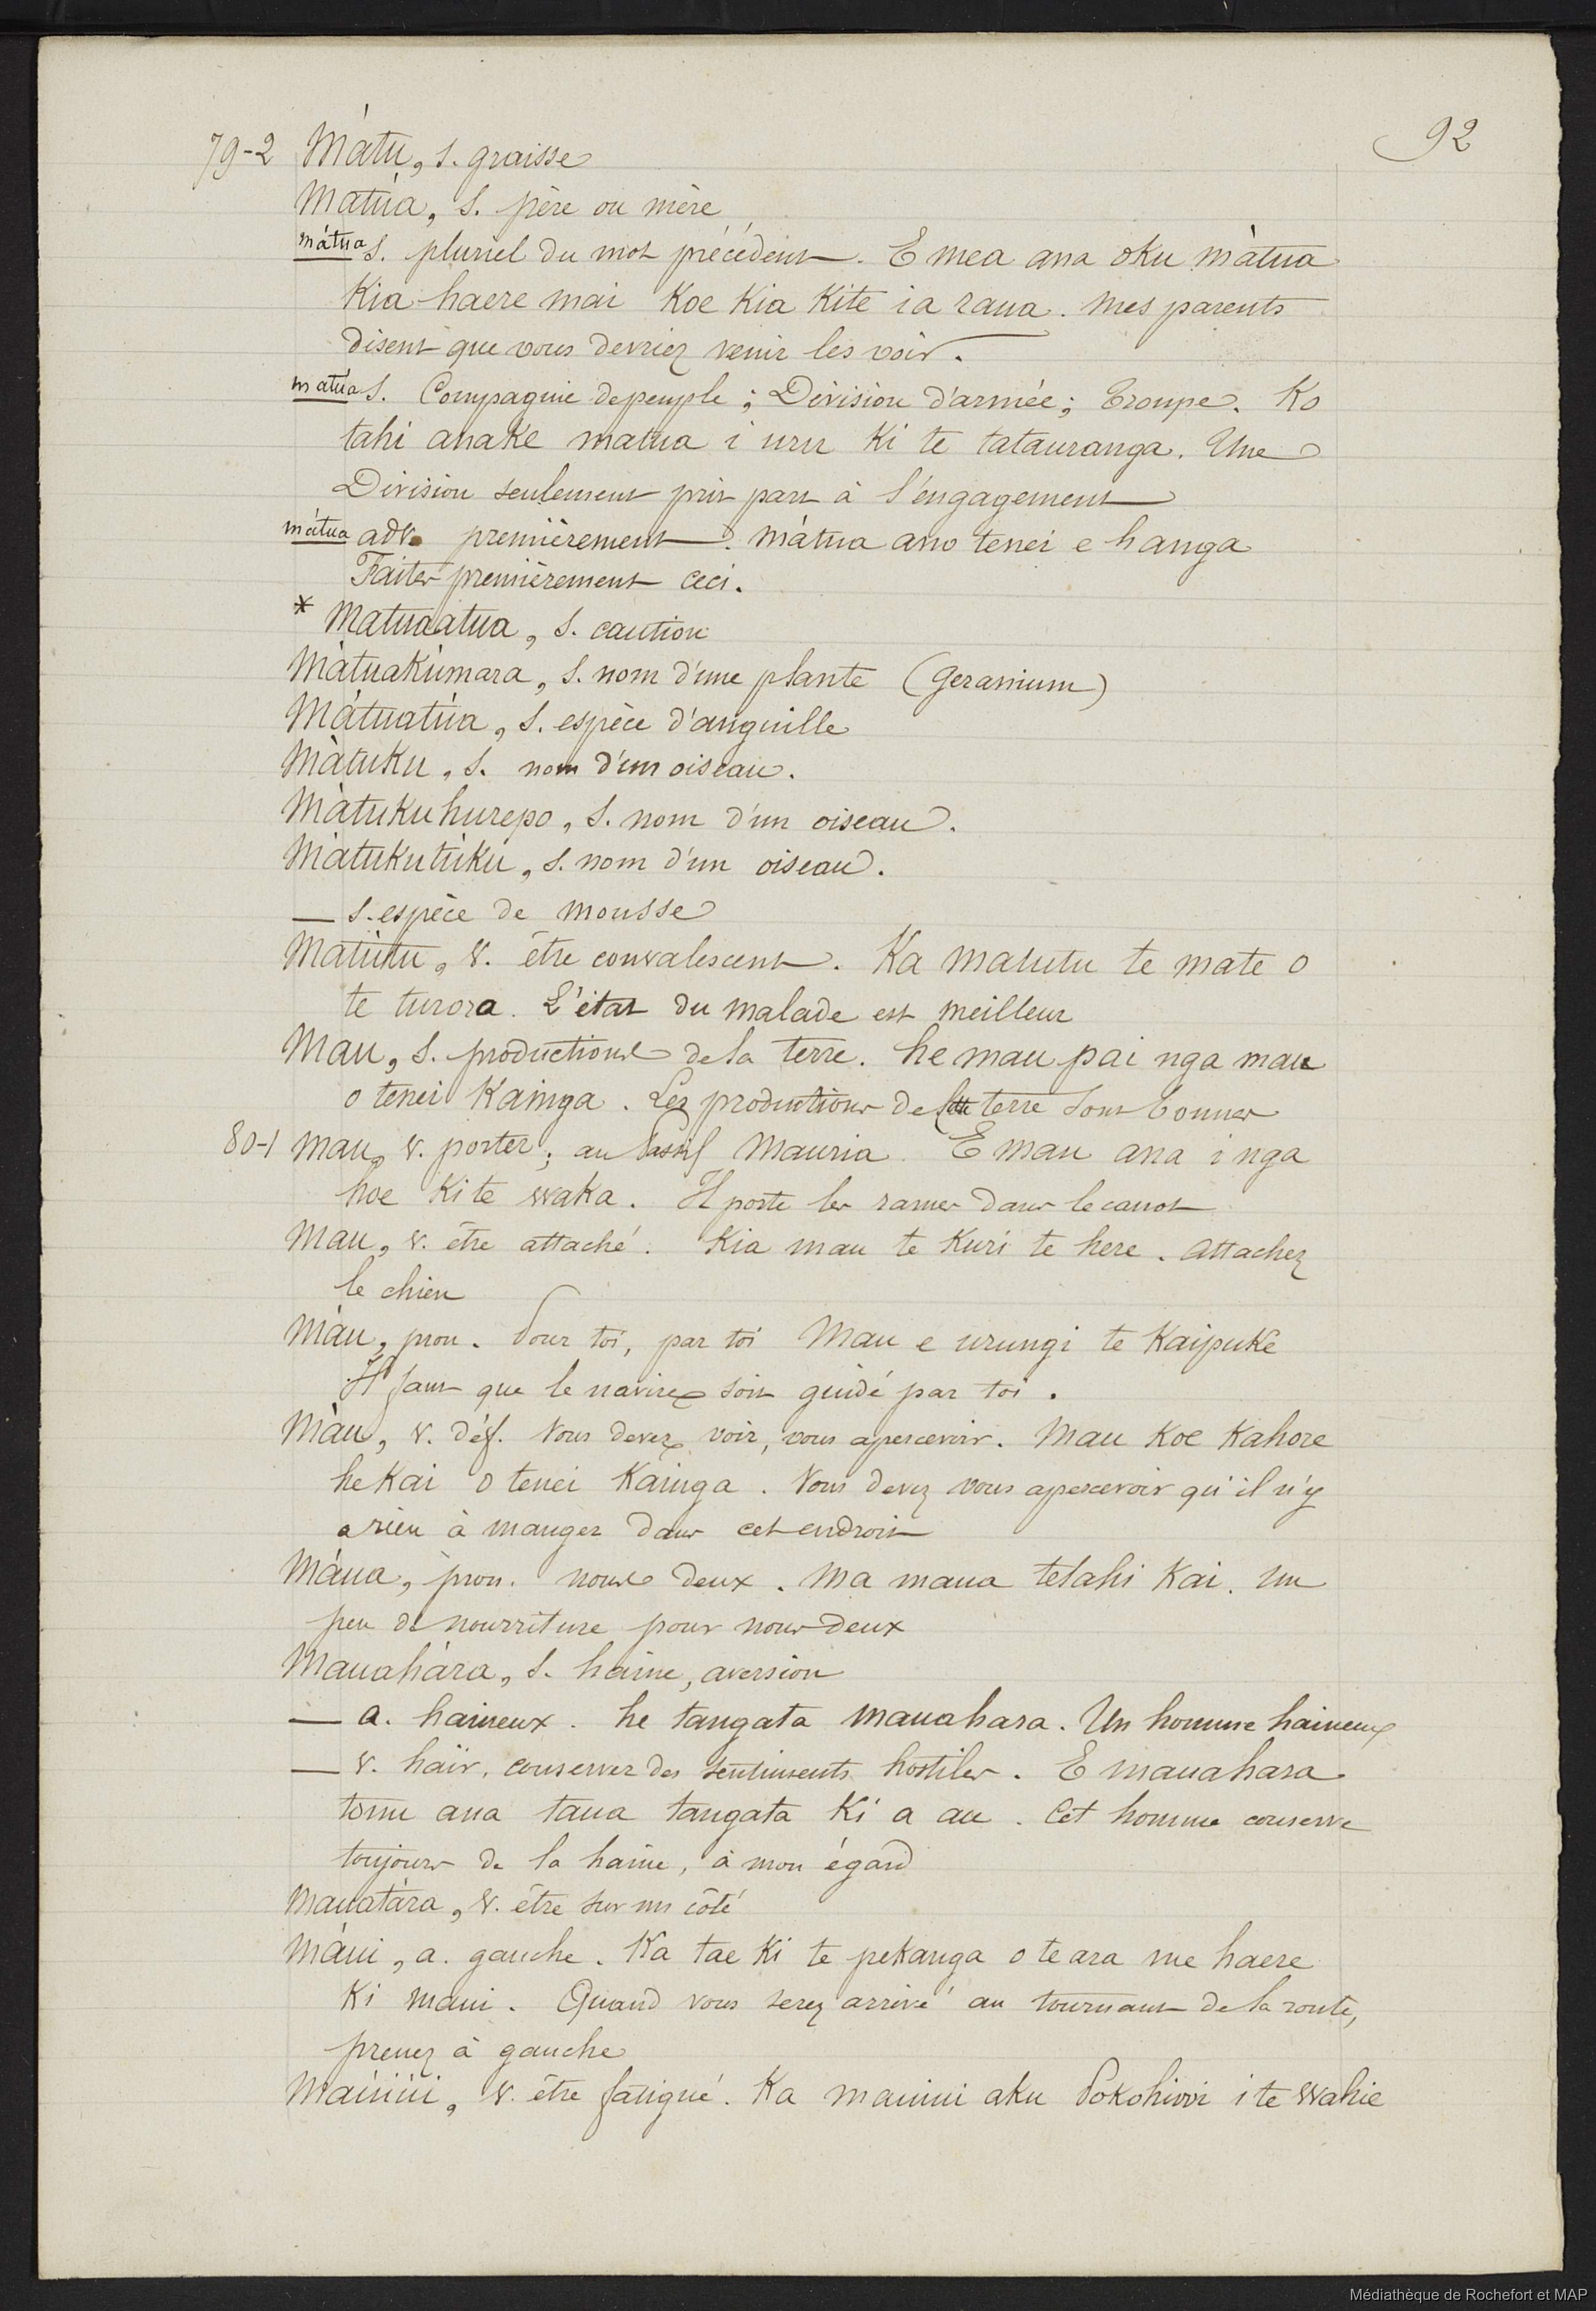 92
79-2 Màtu, s. graisse
Matúa, s. père ou mère
mátua s. pluriel du mot précédent. E mea ana oku màtua
Kia haere mai Koe Kia Kite ia raua. Mes parents
disent que vous devriez venir les voir.
matúa s. Compagnie de peuple; Division d'armée; Troupe. Ko
tahi anake matua i uru Ki te tatauranga. Une
Division seulement prit part à l'engagement
mátua adv. premièrement. mátua ano tenei e hanga
Faites premièrement ceci.
* Matuaatua, s. caution
Màtuakùmara, s. nom d'une plante (Geranium)
Màtuatúa, s. espèce d'anguille
Màtuku, s. nom d'un oiseau.
Màtukuhurepo, s. nom d'un oiseau.
Màtukutùku, s. nom d'un oiseau.
— s. espèce de mousse
Matùtu, v. être convalescent. Ka matutu te mate o
te turora. L'état du malade est meilleur
Mau, s. productions de la terre. he mau pai nga mau
o tenei Kainga. Les productions de cette terre sont bonnes
80-1 Mau, v. porter; au Passif Mauria. E mau ana i nga
hoe Ki te waka. Il porte les rames dans le canot
Mau, v. être attaché. Kia mau te Kuri te here. Attachez
le chien
Màu, pron. Pour toi, par toi Mau e urungi te Kaipuke
Il faut que le navire soit guidé par toi.
Màu, v. déf. Vous devez voir, vous apercevoir. Mau Koe Kahore
he Kai o tenei Kainga. Vous devez vous apercevoir qu'il n'y
a rien à manger dans cet endroit
Màua, pron. nous deux. Ma maua tetahi Kai. Un
peu de nourriture pour nous deux
Mauahàra, s. haine, aversion
— a. haineux. he tangata mauahara. Un homme haineux
— v. haïr, conserver des sentiments hostiles. E mauahara
tonu ana taua tangata Ki a au. Cet homme conserve
toujours de la haine, à mon égard
Mauatàra, v. être sur un côté
Màui, a. gauche. Ka tae Ki te pekanga o te ara me haere
Ki maui. Quand vous serez arrivé au tournant de la route,
prenez à gauche
Mauiui, v. être fatigué. Ka mauiui aku Pokohiwi i te wahie
Médiathèque de Rochefort et MAP